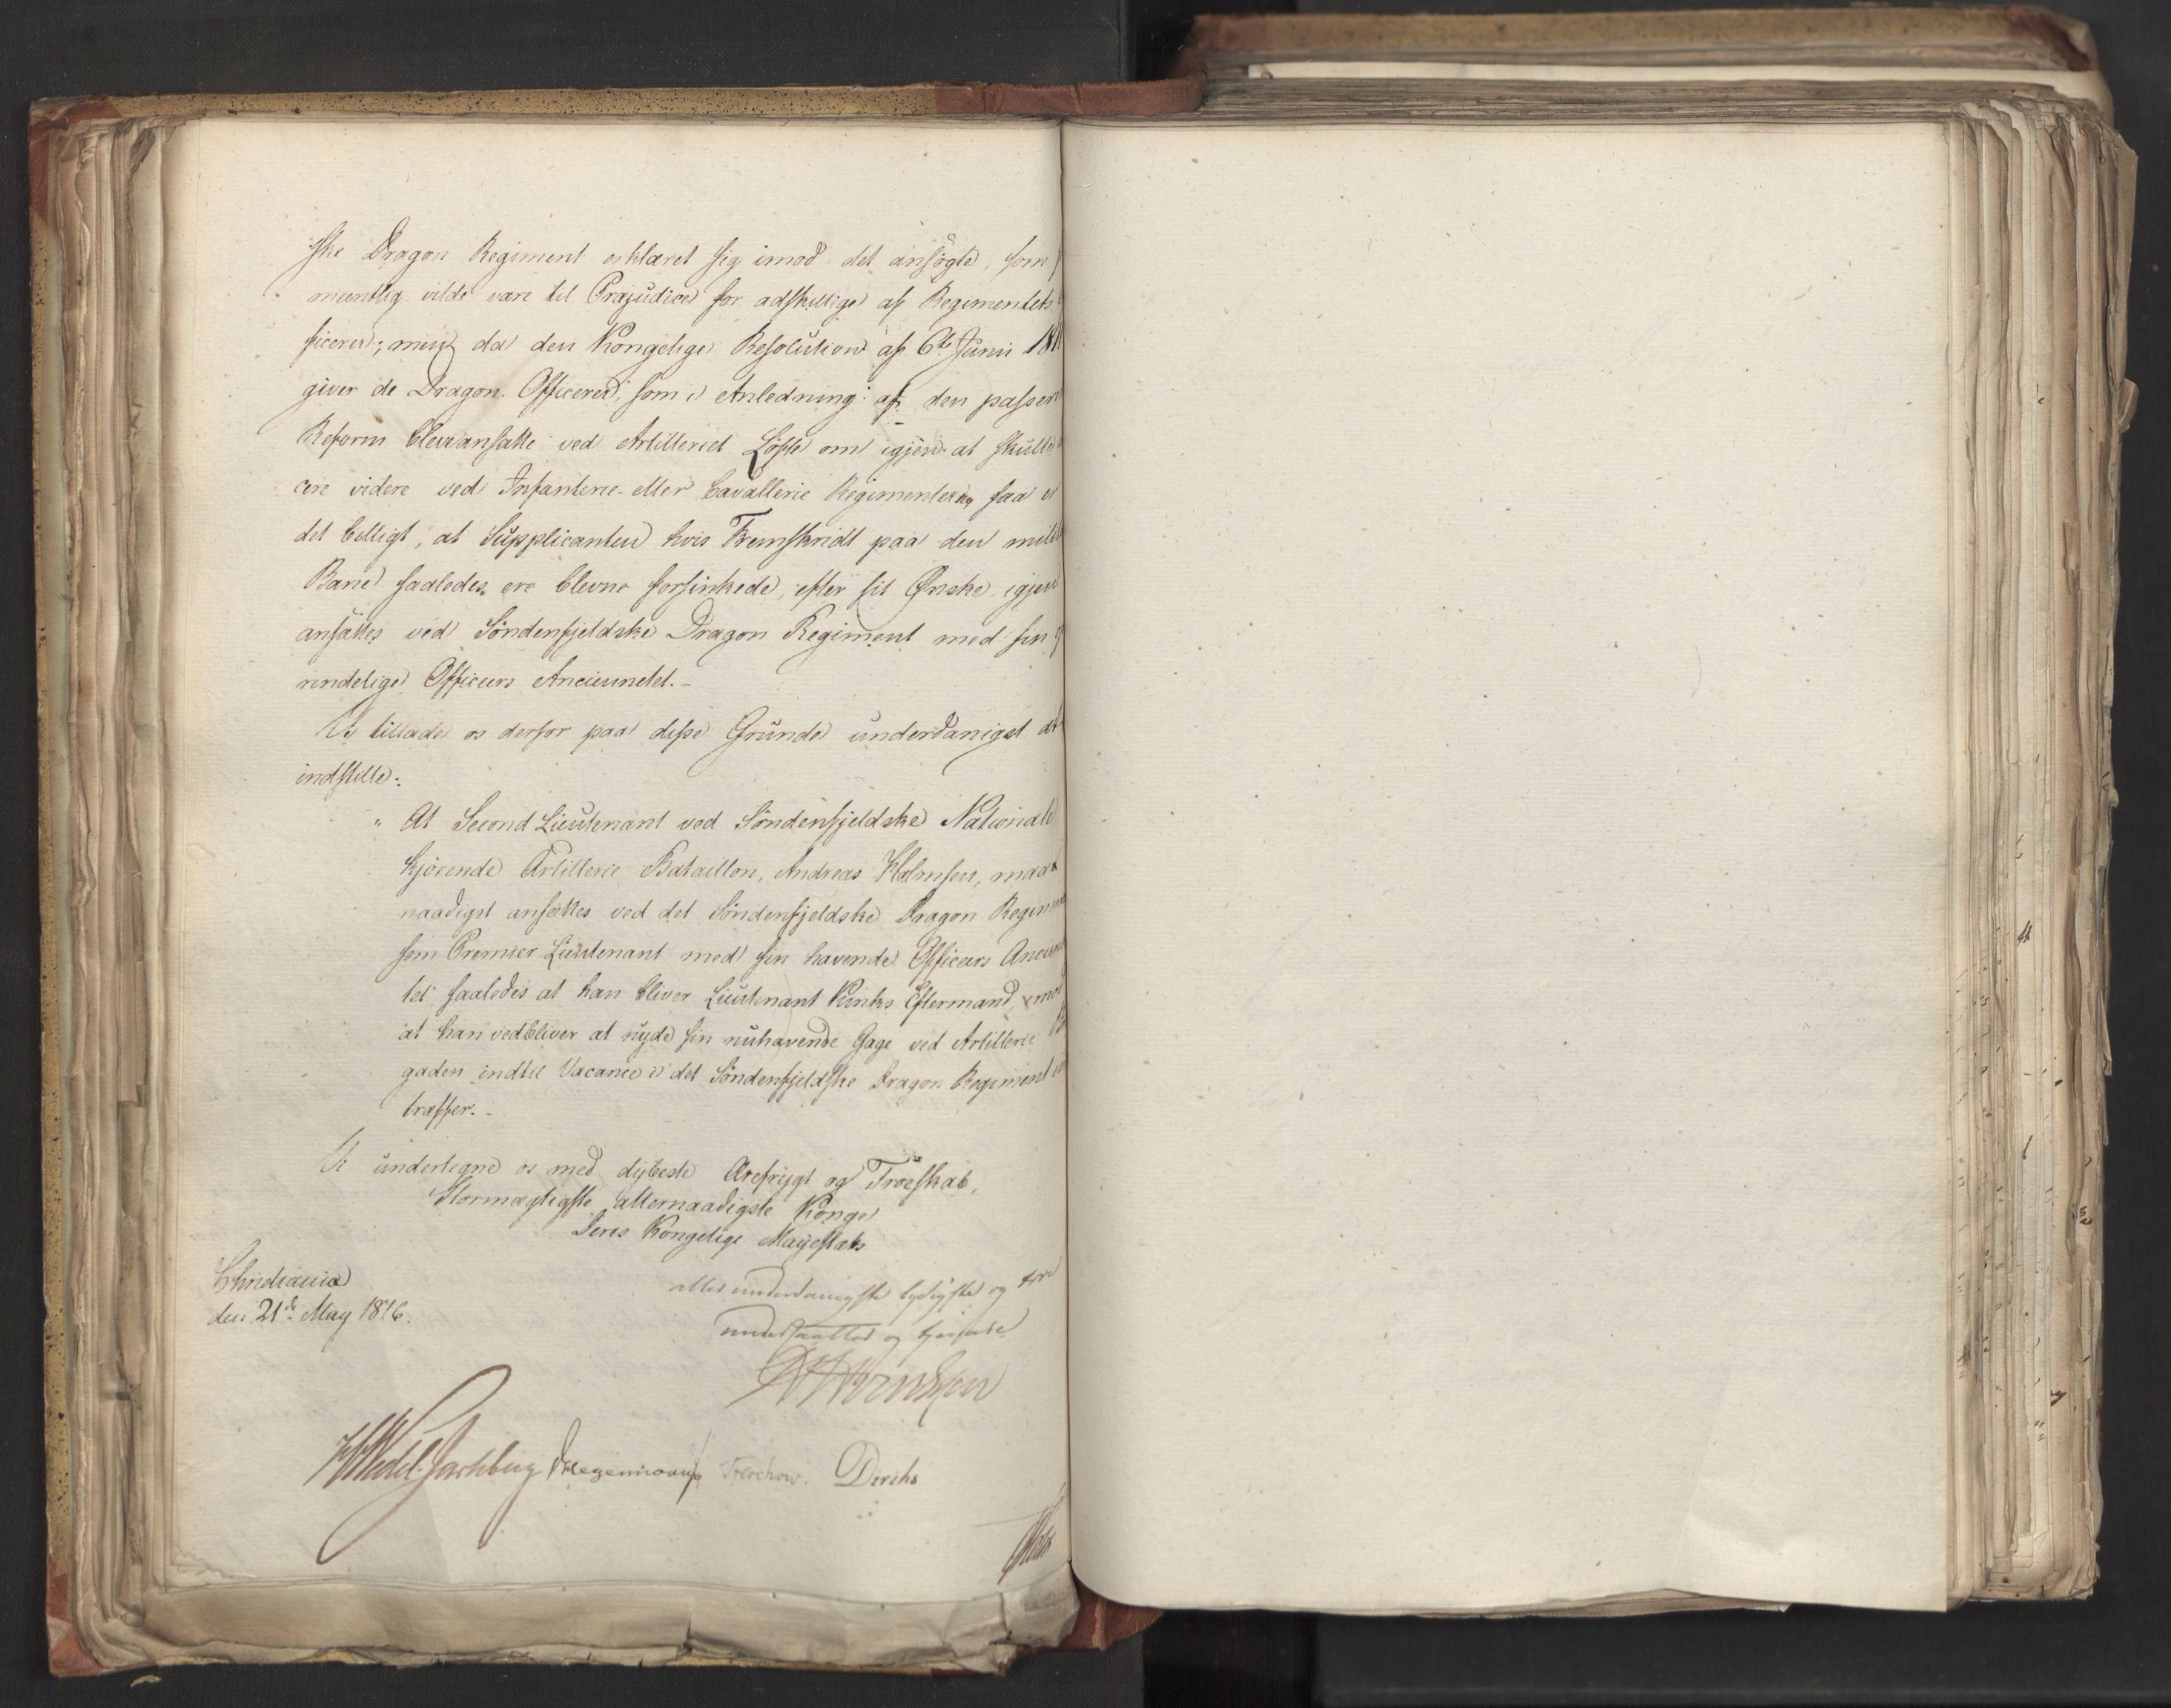 ske Dragon Regiment erklæret sig imod det ansögte, som
meentlig vilde være til Præjudice for adskillige af Regimentets
ficerer; men da den Kongelige Resolution af 6te Junii 181
giver de Dragon Officerer, som i Anledning af den passere
Reform bleve ansatte ved Artilleriet Löfte om igjen at skulle
cere videre ved Infanterie- eller Cavallerie Regimenterne, saa er
det billigt, at Supplicanten hvis Fremskridt paa den milit
Bane saaledes ere blevne forsinkede, efter sit Ønske igjen
ansættes ved Söndenfjeldske Dragon Regiment med sin
rindelige Officeers Anciennetet.-
Vi tillade os derfor paa disse Grunde underdanigst at
indstille:
" At Second Lieutenant ved Söndenfjeldske Nationale
kjörende Artillerie Bataillon, Andreas Holmsen, maa
naadigst ansættes ved det Söndenfjeldske Dragon Regim
som Premier Lieutenant med sin havende Officeers Ancien
tet saaledes at han bliver Lieutenant Eftermand, mod
at han vedbliver at nyde sin nuhavende Gage ved Artillerie
gaden indtil Vacance i det Söndenfjeldske Dragon Regiment
træffer.-
Vi undertegne os med dybeste Ærefrygt og Troeskab,
Stormægtigste allernaadigste Konge
Deres Kongelige Majestæts
Christiania
den 21de May 1816.
allerunderdanigste lydigste og troe
undersaatter og tjenere
Wedel Jarlsberg Treschow. Diriks